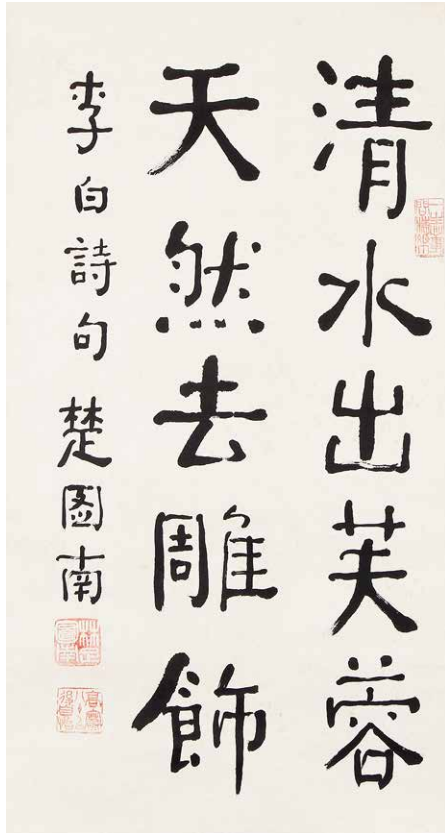 清水出芙蓉
天然去雕飾
李白詩句 楚圖南